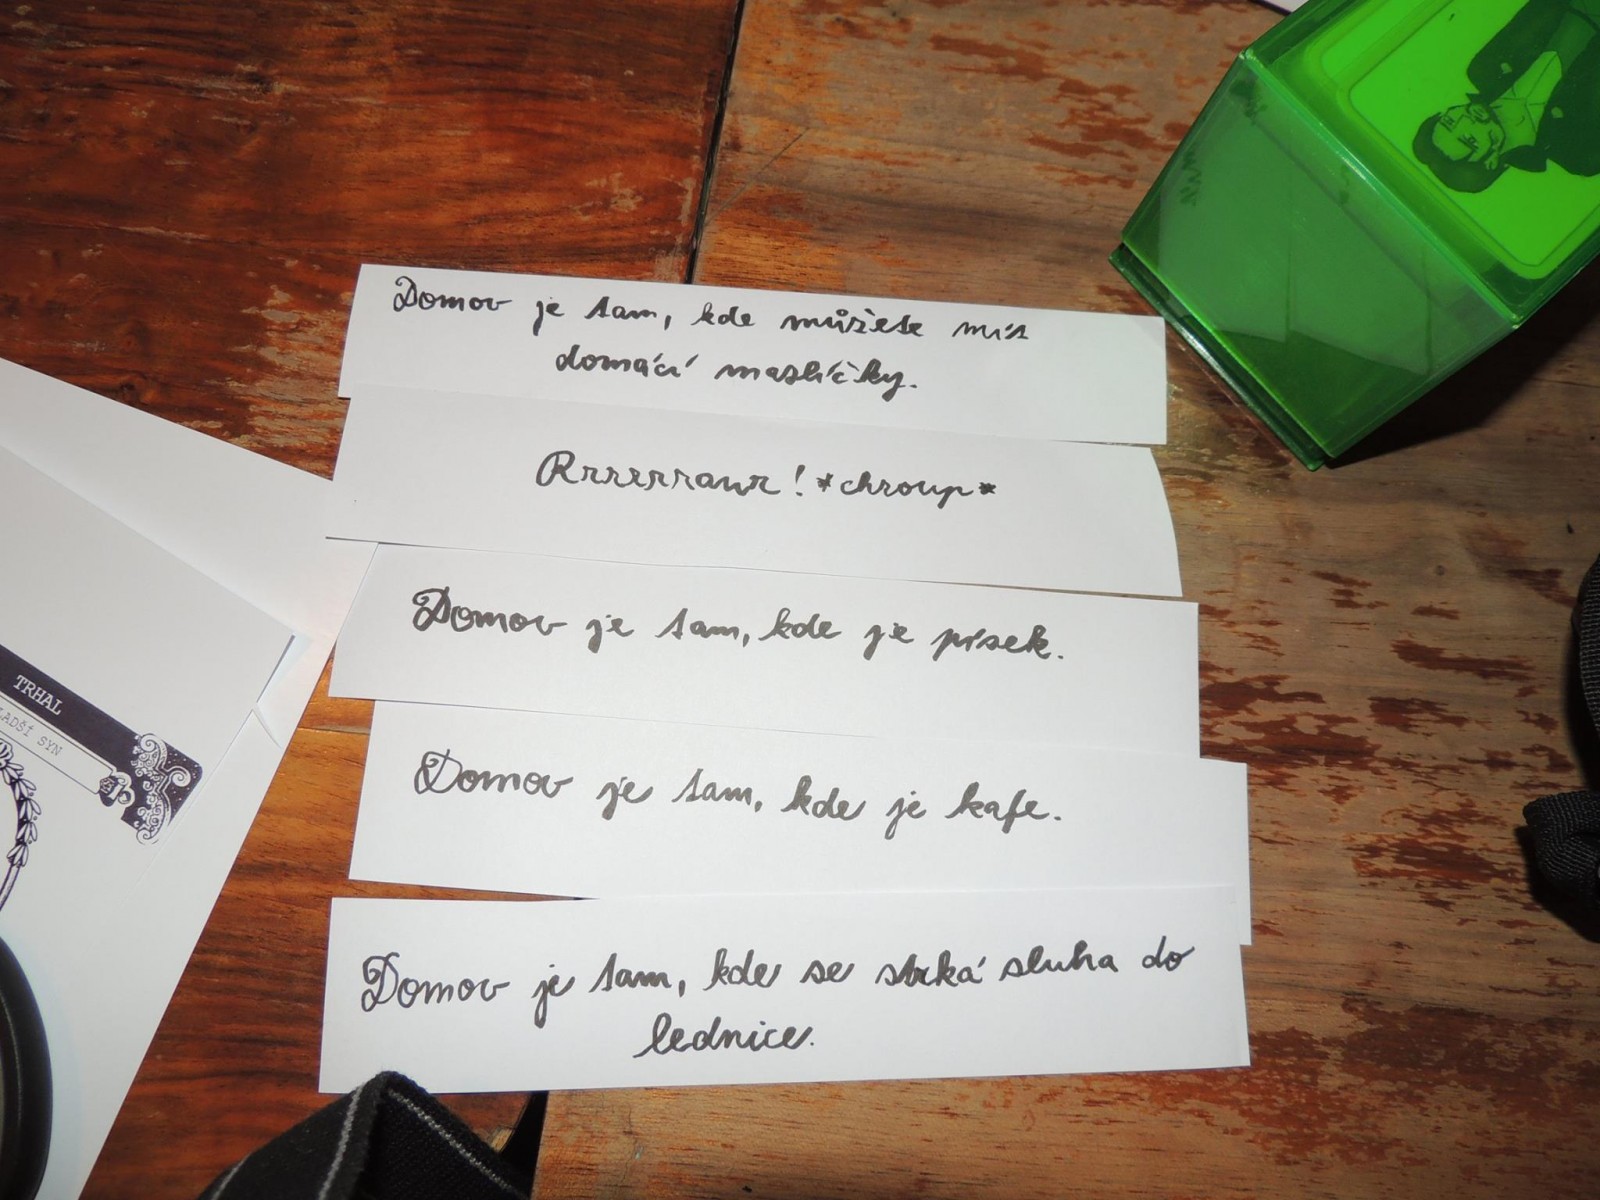 Domov je tam, kde můžete mít
domácí mazlíčky.
Rrrrrrawr! *chroup*
Domov je tam, kde je písek.
Domov je tam, kde je kafe.
Domov je tam, kde se strká sluha do
lednice.
TRHAL
LADŠÍ SYN